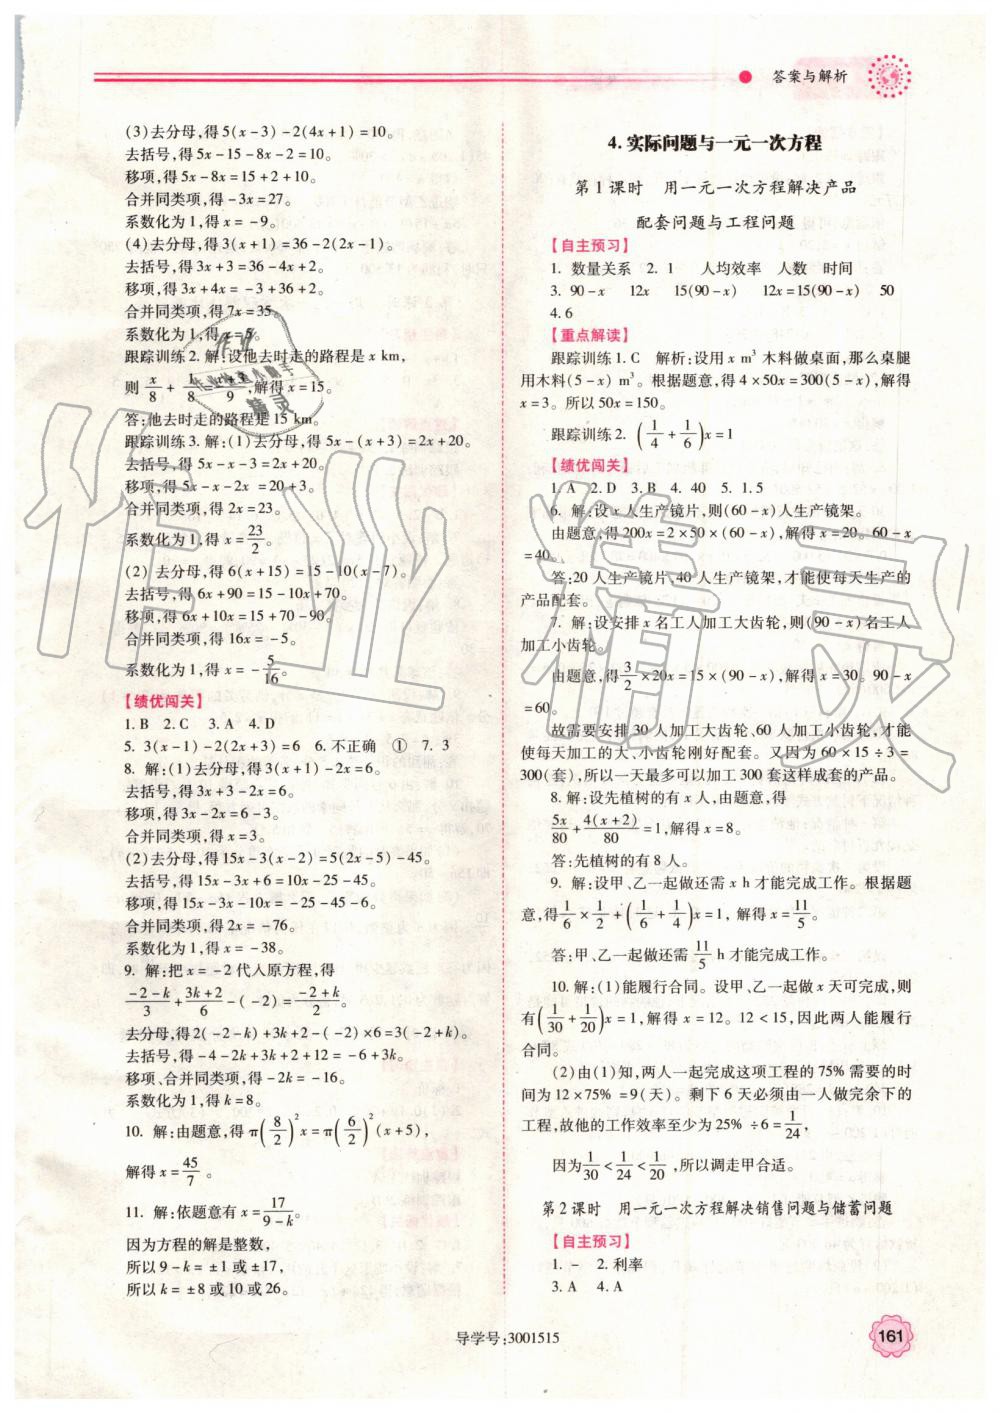 答案与解析
(3)去分母,得5(x-3)-2(4x+1)=10。
去括号,得5x-15-8x-2=10。
移项,得5x-8x=15+2+10。
合并同类项,得-3x=27。
系数化为1,得x=-9。
(4)去分母,得3(x+1)=36-2(2x-1)。
去括号,得3x+3=36-4x+2。
移项,得3x+4x=-3+36+2。
合并同类项,得7x=35。
系数化为1,得x=5。
跟踪训练2. 解:设他去时走的路程是x km,
则 x/8 + ,解得x=15。
答:他去时走的路程是15 km。
跟踪训练3. 解:(1)去分母,得5x-(x+3)=2x+20。
去括号,得5x-x-3=2x+20。
移项,得5x-x-2x=20+3。
合并同类项,得2x=23。
系数化为1,得x=23/2。
(2)去分母,得6(x+15)=15-10(x-7)。
去括号,得6x+90=15-10x+70。
移项,得6x+10x=15+70-90。
合并同类项,得16x=-5。
系数化为1,得x=-5/16。
【绩优闯关】
1. B 2. C 3. A 4. D
5. 3(x-1)-2(2x+3)=6 6. 不正确 ① 7. 3
8. 解:(1)去分母,得3(x+1)-2x=6。
去括号,得3x+3-2x=6。
移项,得3x-2x=6-3。
合并同类项,得x=3。
(2)去分母,得15x-3(x-2)=5(2x-5)-45。
去括号,得15x-3x+6=10x-25-45。
移项,得15x-3x-10x=-25-45-6。
合并同类项,得2x=-76。
系数化为1,得x=-38。
9. 解:把x=-2代入原方程,得
(-2-k)/3+(3k+2)/6-(-2)=(-2+k)/2。
去分母,得2(-2-k)+3k+2-(-2)×6=3(-2+k)。
去括号,得-4-2k+3k+2+12=-6+3k。
移项、合并同类项,得-2k=-16。
系数化为1,得k=8。
10. 解:由题意,得π(8/2)²x=π(6/2)²(x+5),
解得x=45/7。
11. 解:依题意有x=17/(9-k)。
因为方程的解是整数,
所以9-k=±1或±17,
所以k=±8或10或26。
4. 实际问题与一元一次方程
第1课时 用一元一次方程解决产品
配套问题与工程问题
【自主预习】
1. 数量关系 2. 1 人均效率 人数 时间
3. 90-x 12x 15(90-x) 12x=15(90-x) 50
4. 6
【重点解读】
跟踪训练1. C 解析:设用x m³木料做桌面,那么桌腿
用木料(5-x) m³。根据题意,得4×50x=300(5-x),解得
x=3。所以50x=150。
跟踪训练2. (1/4+1/6)x=1
【绩优闯关】
1. A 2. D 3. B 4. 40 5. 1.5
6. 解:设x人生产镜片,则(60-x)人生产镜架。
由题意,得200x=2×50×(60-x),解得x=20。60-x
=40。
答:20人生产镜片,40人生产镜架,才能使每天生产的
产品配套。
7. 解:设安排x名工人加工大齿轮,则(90-x)名工人
加工小齿轮。
由题意,得3/2×20x=15×(90-x),解得x=30。90-x
=60。
故需要安排30人加工大齿轮、60人加工小齿轮,才能
使每天加工的大、小齿轮刚好配套。又因为60×15÷3=
300(套),所以一天最多可以加工300套这样成套的产品。
8. 解:设先植树的有x人,由题意,得
5x/80+4(x+2)/80=1,解得x=8。
答:先植树的有8人。
9. 解:设甲、乙一起做还需x h才能完成工作。根据题
意,得1/6×1/2+(1/6+1/4)x=1,解得x=11/5。
答:甲、乙一起做还需11/5 h才能完成工作。
10. 解:(1)能履行合同。设甲、乙一起做x天可完成,则
有(1/30+1/20)x=1,解得x=12。12<15,因此两人能履行
合同。
(2)由(1)知,两人一起完成这项工程的75%需要的时
间为12×75%=9(天)。剩下6天必须由一人做完余下的
工程,故他的工作效率至少为25%÷6=1/24,
因为1/30<1/24<1/20,所以调走甲合适。
第2课时 用一元一次方程解决销售问题与储蓄问题
【自主预习】
1. - 2. 利率
3. A 4. A
导学号:3001515
161
作业精灵